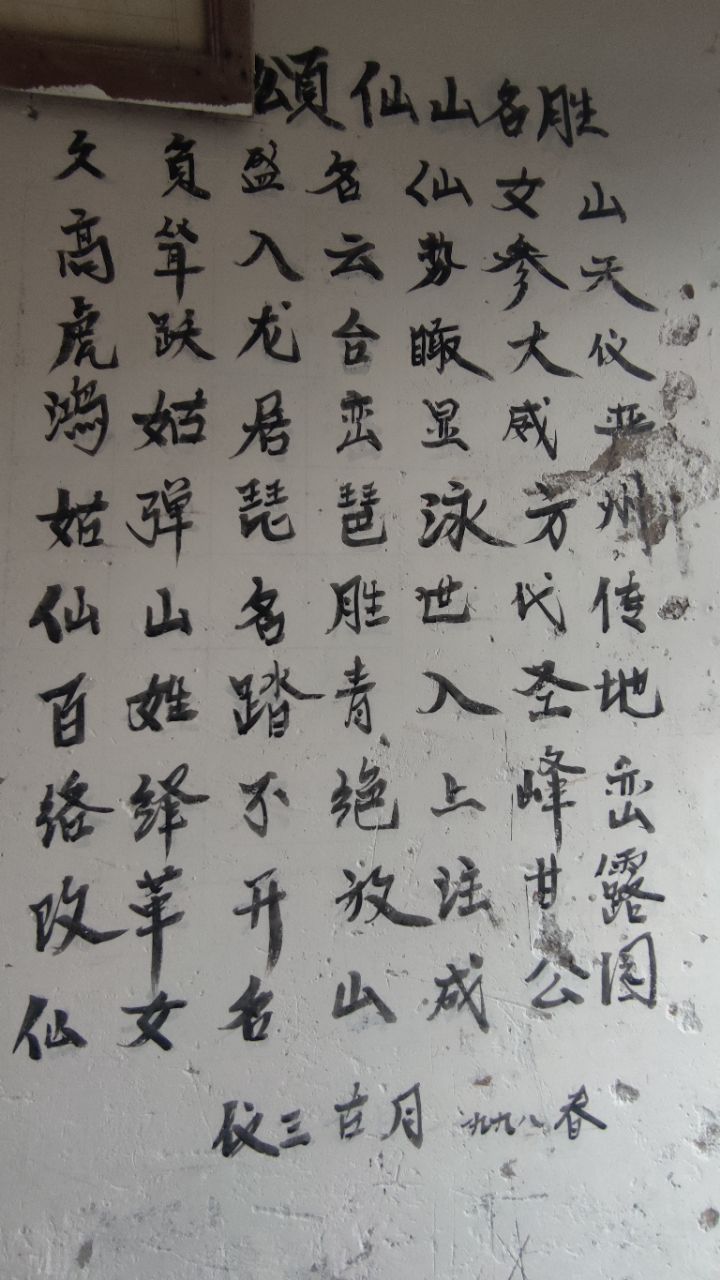 頌仙山名胜
久负盈名仙文山
高耸入云势参天
虎跃龙台瞰大仪
鸿姑居峦显威
姑弹琵琶泳方州
仙山名胜世代传
百姓踏青入圣地
络绎不绝上峰峦
改革开放注甘露
仙女名山成公园
仪三古月 九九八春